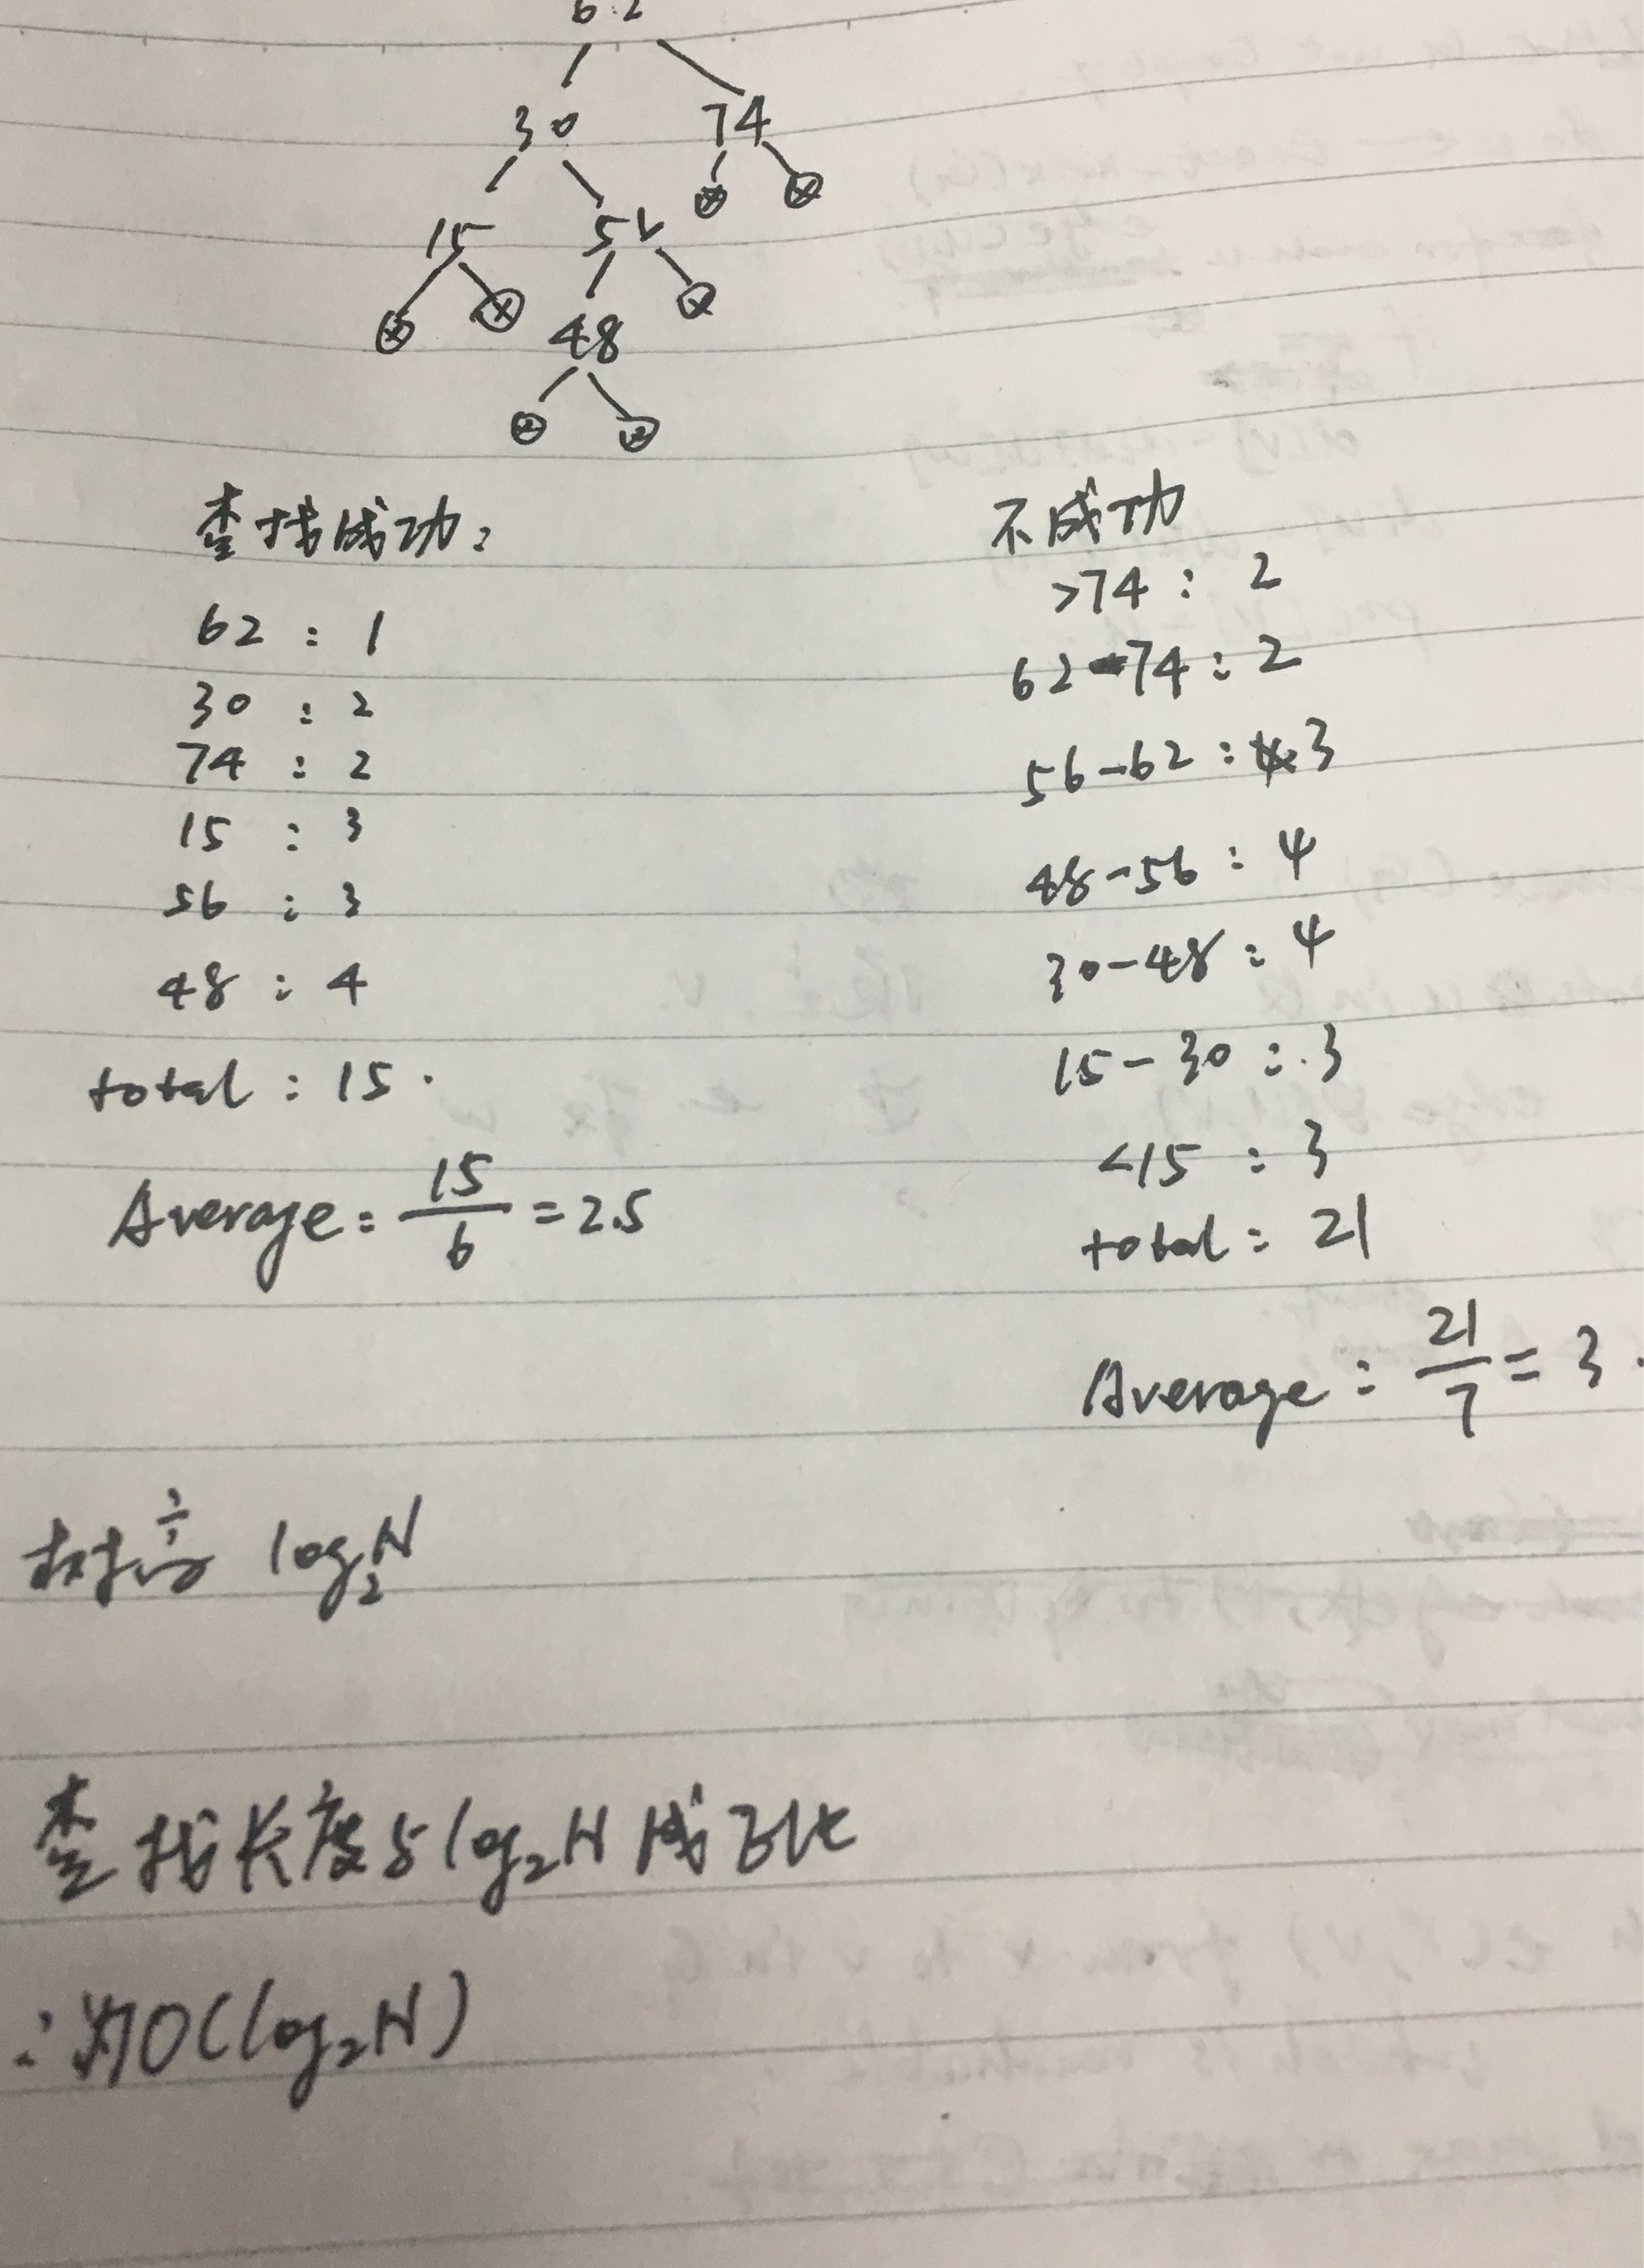 62
30 74
15 56
48
查找成功:
62 : 1
30 : 2
74 : 2
15 : 3
56 : 3
48 : 4
total : 15.
Average = 15/6 = 2.5
不成功
>74 : 2
62-74 : 2
56-62 : 3
48-56 : 4
30-48 : 4
15-30 : 3
<15 : 3
total : 21
Average : 21/7 = 3.
树高 log₂N
查找长度与log₂N成正比
∴为O(log₂N)